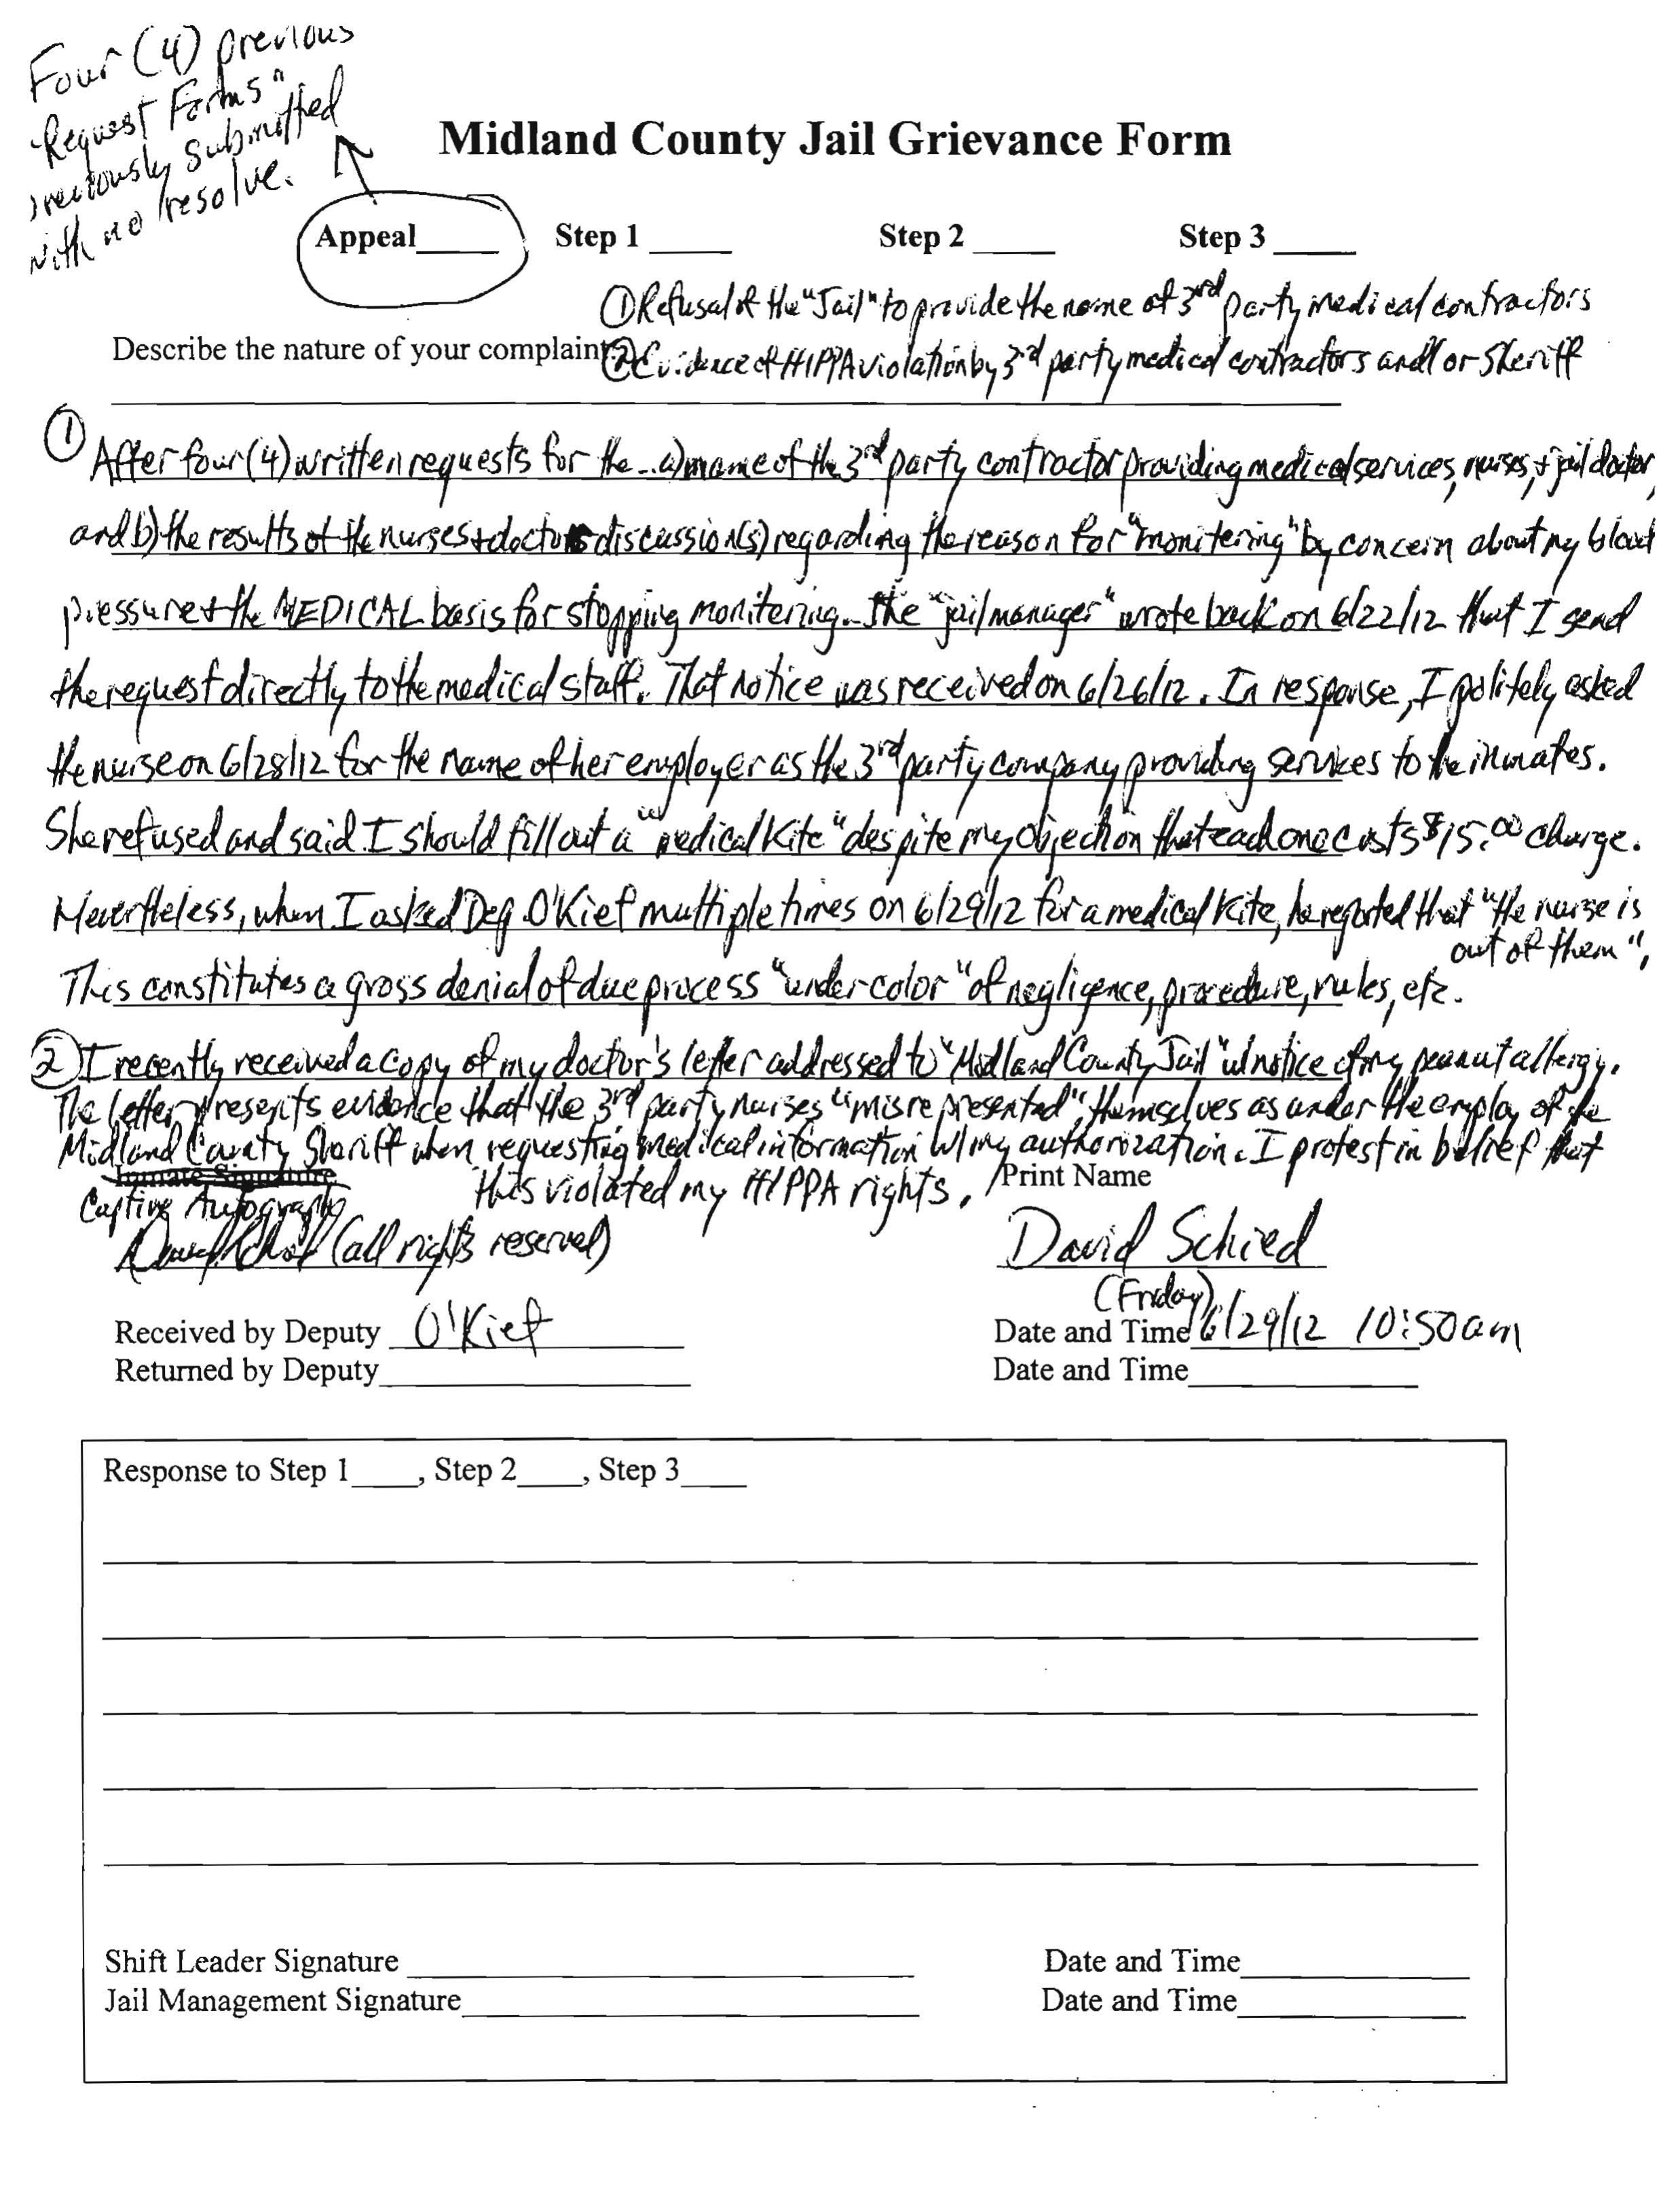 Four (4) previous
"Request Forms"
previously submitted
with no resolve.
Midland County Jail Grievance Form
Appeal_____ Step 1 _____ Step 2 _____ Step 3 _____
① Refusal of the "Jail" to provide the name of 3rd party medical contractors
Describe the nature of your complaint: ② Evidence of HIPPA violation by 3rd party medical contractors and/or Sheriff
① After four (4) written requests for the... a) name of the 3rd party contractor providing medical services, nurses, + jail doctor,
and b) the results of the nurses + doctors discussion(s) regarding the reason for "monitering" by concern about my blood
pressure + the MEDICAL basis for stopping monitering. The "jail manager" wrote back on 6/22/12 that I send
the request directly to the medical staff. That notice was received on 6/26/12. In response, I politely asked
the nurse on 6/28/12 for the name of her employer as the 3rd party company providing services to the inmates.
She refused and said I should fill out a "medical Kite" despite my objection that each one costs $15.00 charge.
Nevertheless, when I asked Dep. O'Kief multiple times on 6/29/12 for a medical kite, he reported that "the nurse is
out of them".
This constitutes a gross denial of due process "under color" of negligence, procedure, rules, etc.
② I recently received a copy of my doctor's letter addressed to "Midland County Jail" w/ notice of my peanut allergy.
The letter presents evidence that the 3rd party nurses "misrepresented" themselves as under the employ of the
Midland County Sheriff when requesting medical information w/ my authorization. I protest in belief that
Inmate Signature this violated my HIPPA rights. Print Name
Captive Autograph
David Schied (all rights reserved) David Schied
(Friday)
Received by Deputy O'Kief Date and Time 6/29/12 10:50am
Returned by Deputy_____ Date and Time_____
Response to Step 1____, Step 2____, Step 3____
Shift Leader Signature _____ Date and Time_____
Jail Management Signature_____ Date and Time_____